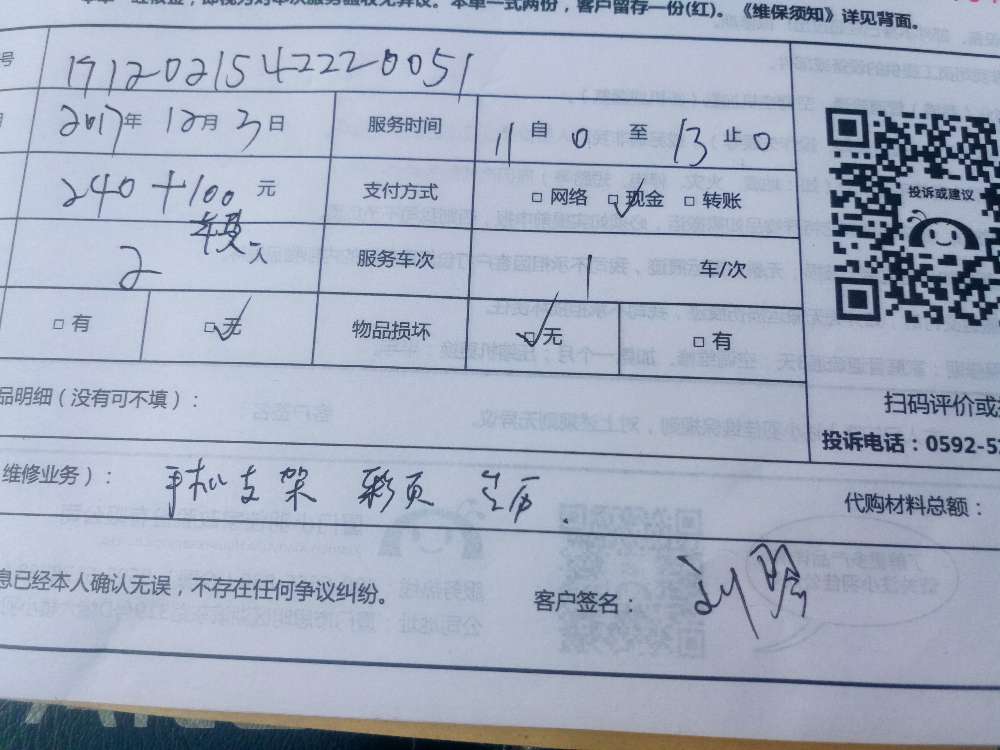 本单一式两份，客户留存一份(红)。《维保须知》详见背面。
号 1912021542220051
2017年 12月 3日 服务时间 自 11 0 至 13 止 0
240+100 元 支付方式 □ 网络 □ 现金 □ 转账
2 人 服务车次 1 车/次
□ 有 □ 无 物品损坏 □ 无 □ 有
投诉或建议
品明细（没有可不填）：
扫码评价或
投诉电话：0592-5
维修业务）： 手机支架 彩页
代购材料总额：
息已经本人确认无误，不存在任何争议纠纷。
客户签名：